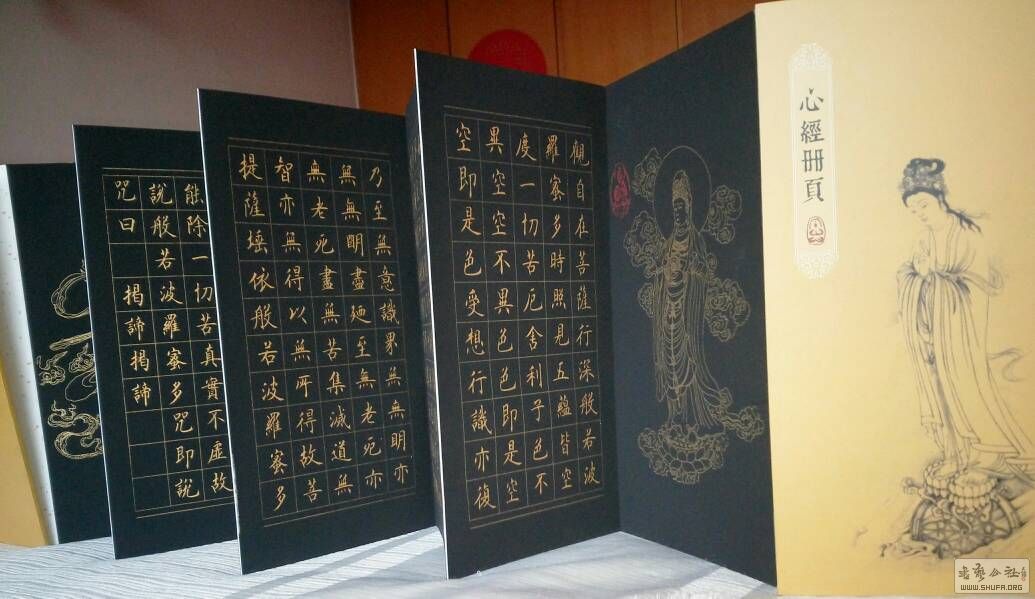 心經冊頁
觀自在菩薩行深般若波
羅蜜多時照見五蘊皆空
度一切苦厄舍利子色不
異空空不異色色即是空
空即是色受想行識亦復
乃至無意識界無無明亦
無無明盡廼至無老死亦
無老死盡無苦集滅道無
智亦無得以無所得故菩
提薩埵依般若波羅蜜多
能除一切苦真實不虛故
說般若波羅蜜多咒即說
咒曰 揭諦揭諦
书艺公社
WWW.SHUFA.ORG